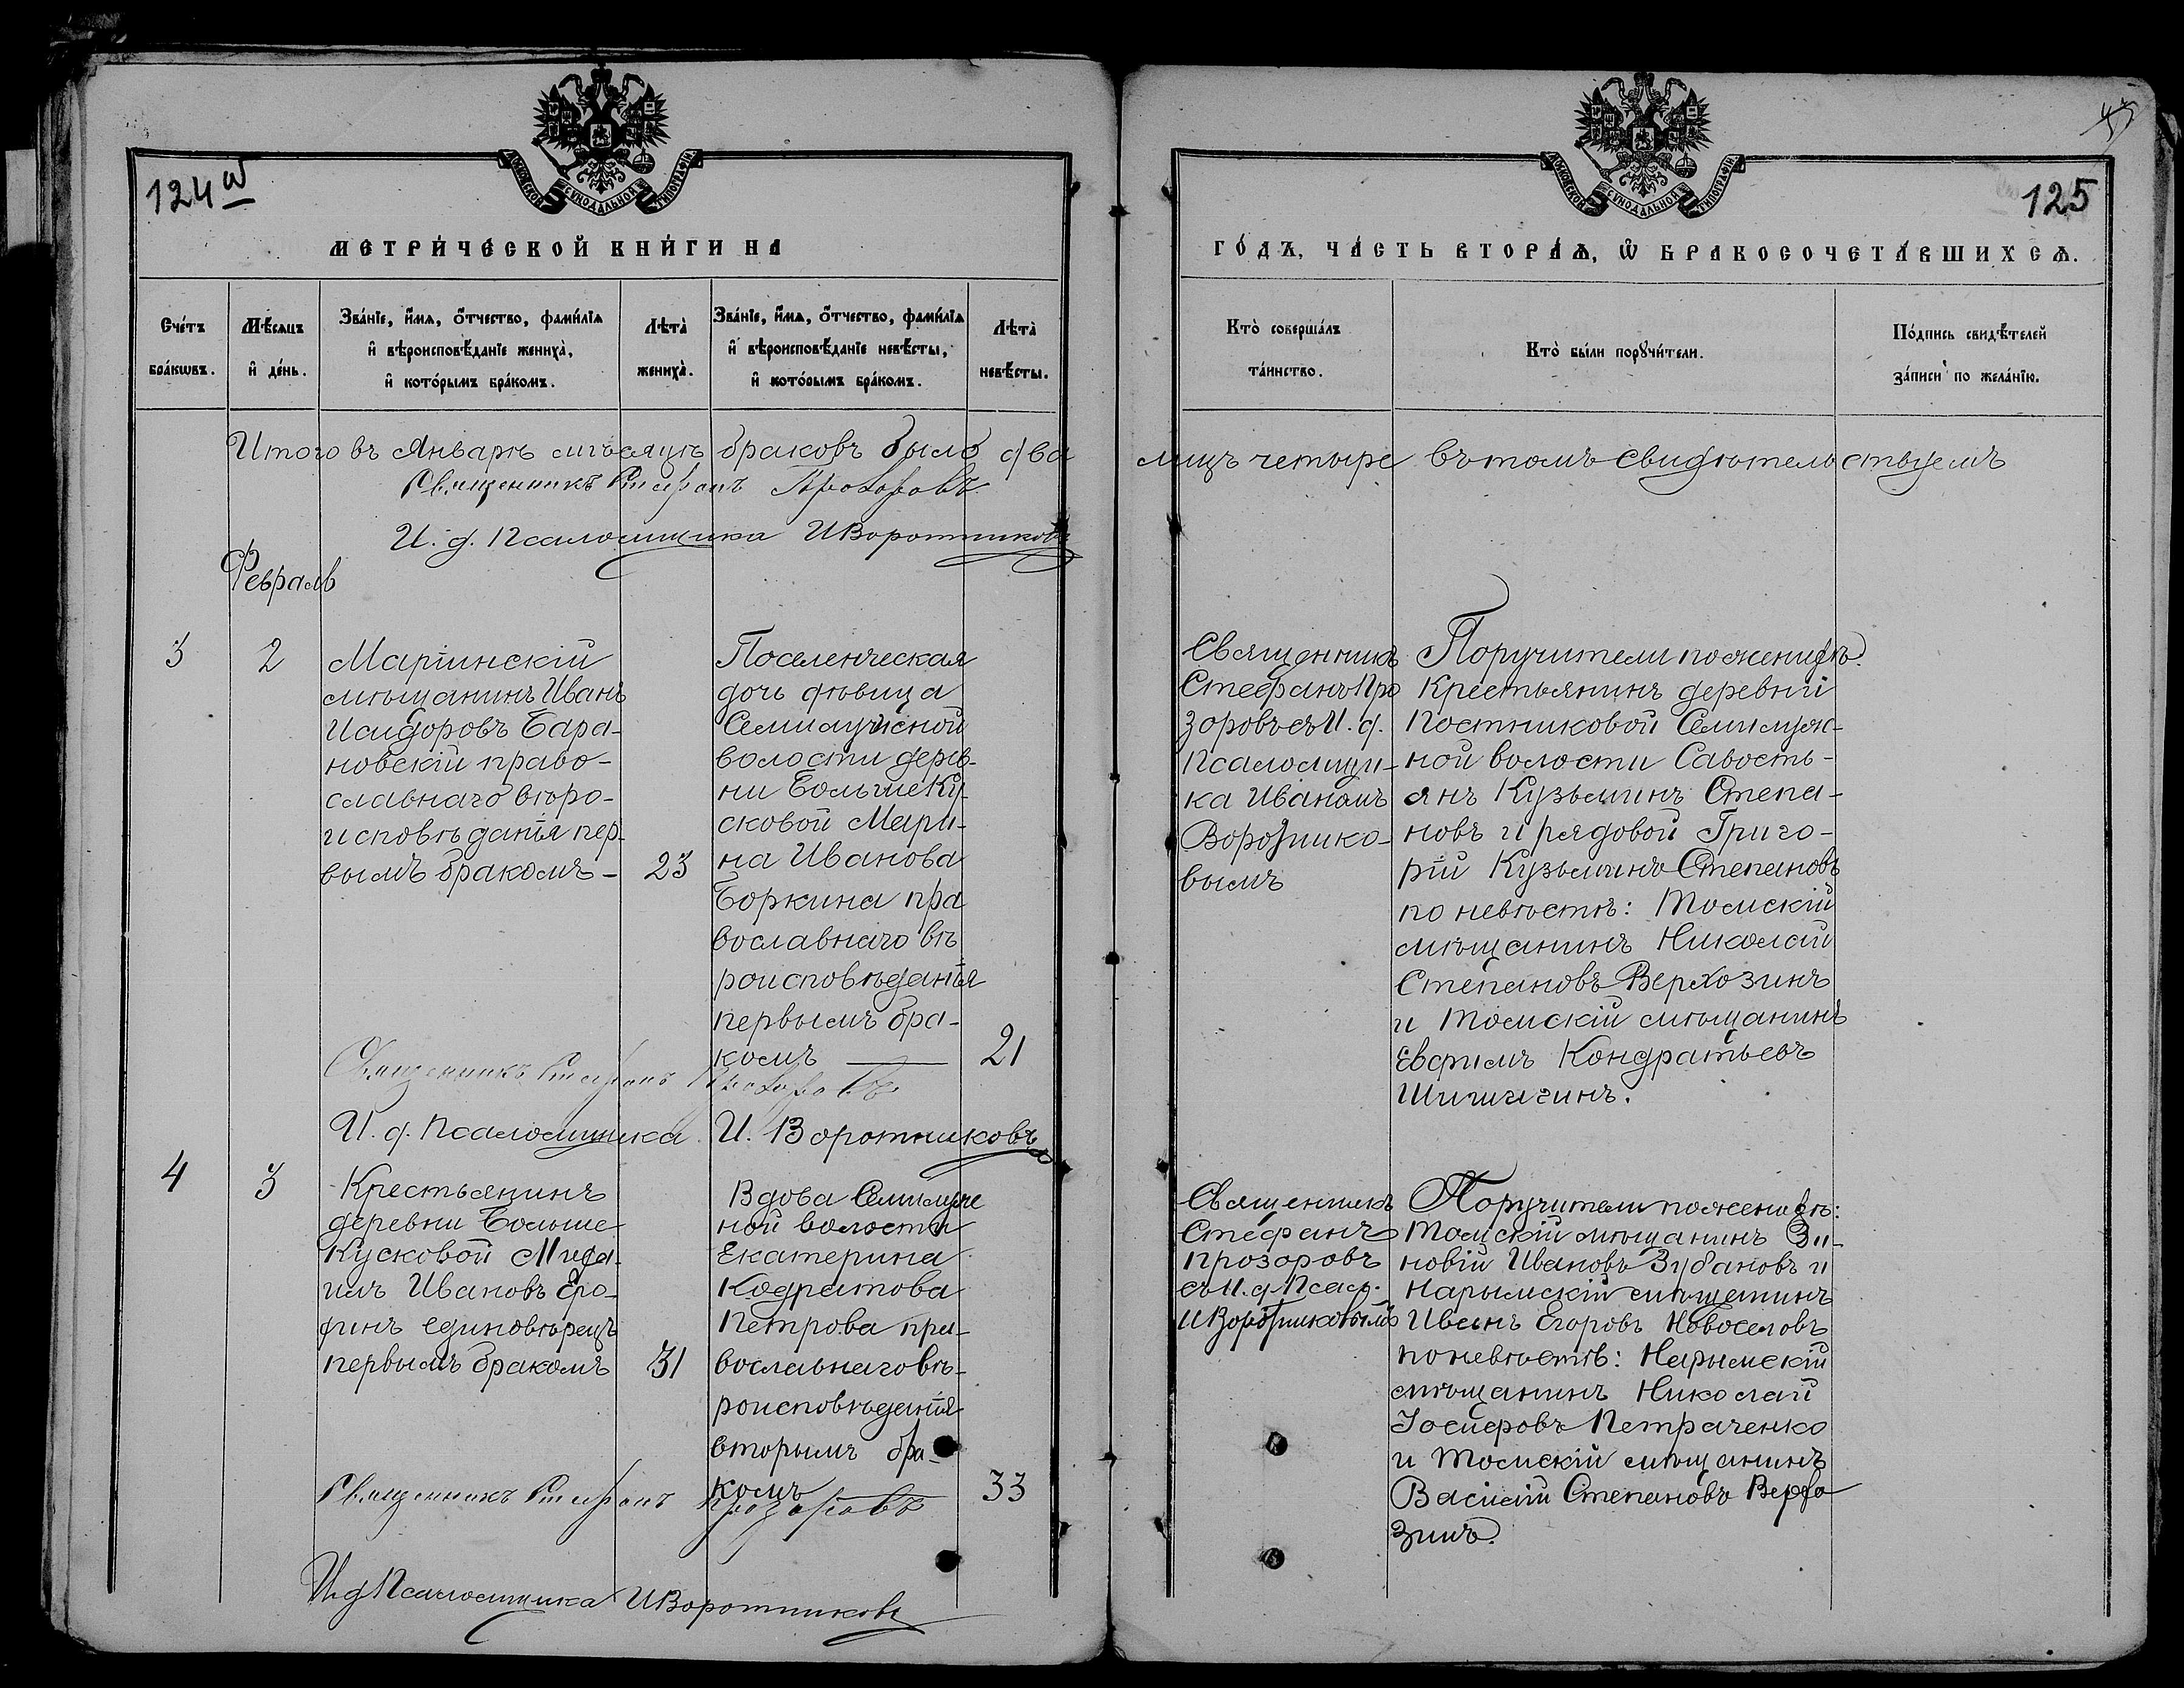 124 об
МЕТРИ́ЧЕСКОЙ КНИ́ГИ НА
Сче́тъ бра́кѡвъ.
Мѣ́сяцъ и҆ де́нь.
Зва́нїе, и҆́мѧ, ѻ҆́тчество, фами́лїѧ и҆ вѣроисповѣ́данїе жениха̀, и҆ кото́рымъ бра́комъ.
Лѣта̀ жениха̀.
Зва́нїе, и҆́мѧ, ѻ҆́тчество, фами́лїѧ и҆ вѣроисповѣ́данїе невѣ́сты, и҆ кото́рымъ бра́комъ.
Лѣта̀ невѣ́сты.
Итого въ Январѣ мѣсяцѣ браковъ было два
Священникъ Стефанъ Прозоровъ
И. д. Псаломщика ИВоротниковъ
Февраль
3
2
Маріинскій
мѣщанинъ Иванъ
Исидоровъ Бара-
новскій право-
славнаго вѣро-
исповѣданія пер-
вымъ бракомъ –
23
Поселенческая
дочь дѣвица
Семилужной
волости дерев-
ни БольшеКу-
сковой Мари-
на Иванова
Боркина пра
вославнаго вѣ
роисповѣданія
первымъ бра-
комъ
21
Священникъ Стефанъ Прозоровъ
И. д. Псаломщика И. Воротниковъ
4
3
Крестьянинъ
деревни Больше
Кусковой Миха-
илъ Ивановъ Еро-
финъ единовѣрецъ
первымъ бракомъ
31
Вдова Семилуж
ной волости
Екатерина
Кодратова
Петрова пра-
вославнаго вѣ-
роисповѣданія
вторымъ бра-
комъ
33
Священникъ Стефанъ Прозоровъ
И.д Псаломщика ИВоротниковъ
125
ГО́ДЪ, ЧА́СТЬ ВТОРА́Ѧ, Ѽ БРАКОСОЧЕТА́ВШИХСѦ.
Кто̀ соверша́лъ та́инство.
Кто̀ бы́ли порꙋчи́тели.
По́дпись свидѣ́телей за́писи по жела́нїю.
лицъ четыре въ томъ свидѣтельствуемъ
Священникъ
Стефанъ Про
зоровъ съ И. д.
Псаломщи-
ка Иваномъ
Воротнико-
вымъ
Поручители по женихѣ:
Крестьянинъ деревни
Постниковой Семилуж-
ной волости Савость-
янъ Кузьминъ Степа-
новъ и рядовой Григо-
рій Кузьминъ Степановъ
по невѣстѣ: Томскій
мѣщанинъ Николай
Степановъ Верхозинъ
и Томскій мѣщанинъ
Евфимъ Кондратьевъ
Шишигинъ.
Священникъ
Стефанъ
Прозоровъ
съ И. д. Псал.
ИВоротниковымъ
Поручители по женихѣ:
Томскій мѣщанинъ Зи-
новій Ивановъ Зубановъ и
Нарымскій мѣщанинъ
Иванъ Егоровъ Новоселовъ
по невѣстѣ: Нарымскій
мѣщанинъ Николай
Іосифовъ Петраченко
и Томскій мѣщанинъ
Василій Степановъ Верхо
зинъ.